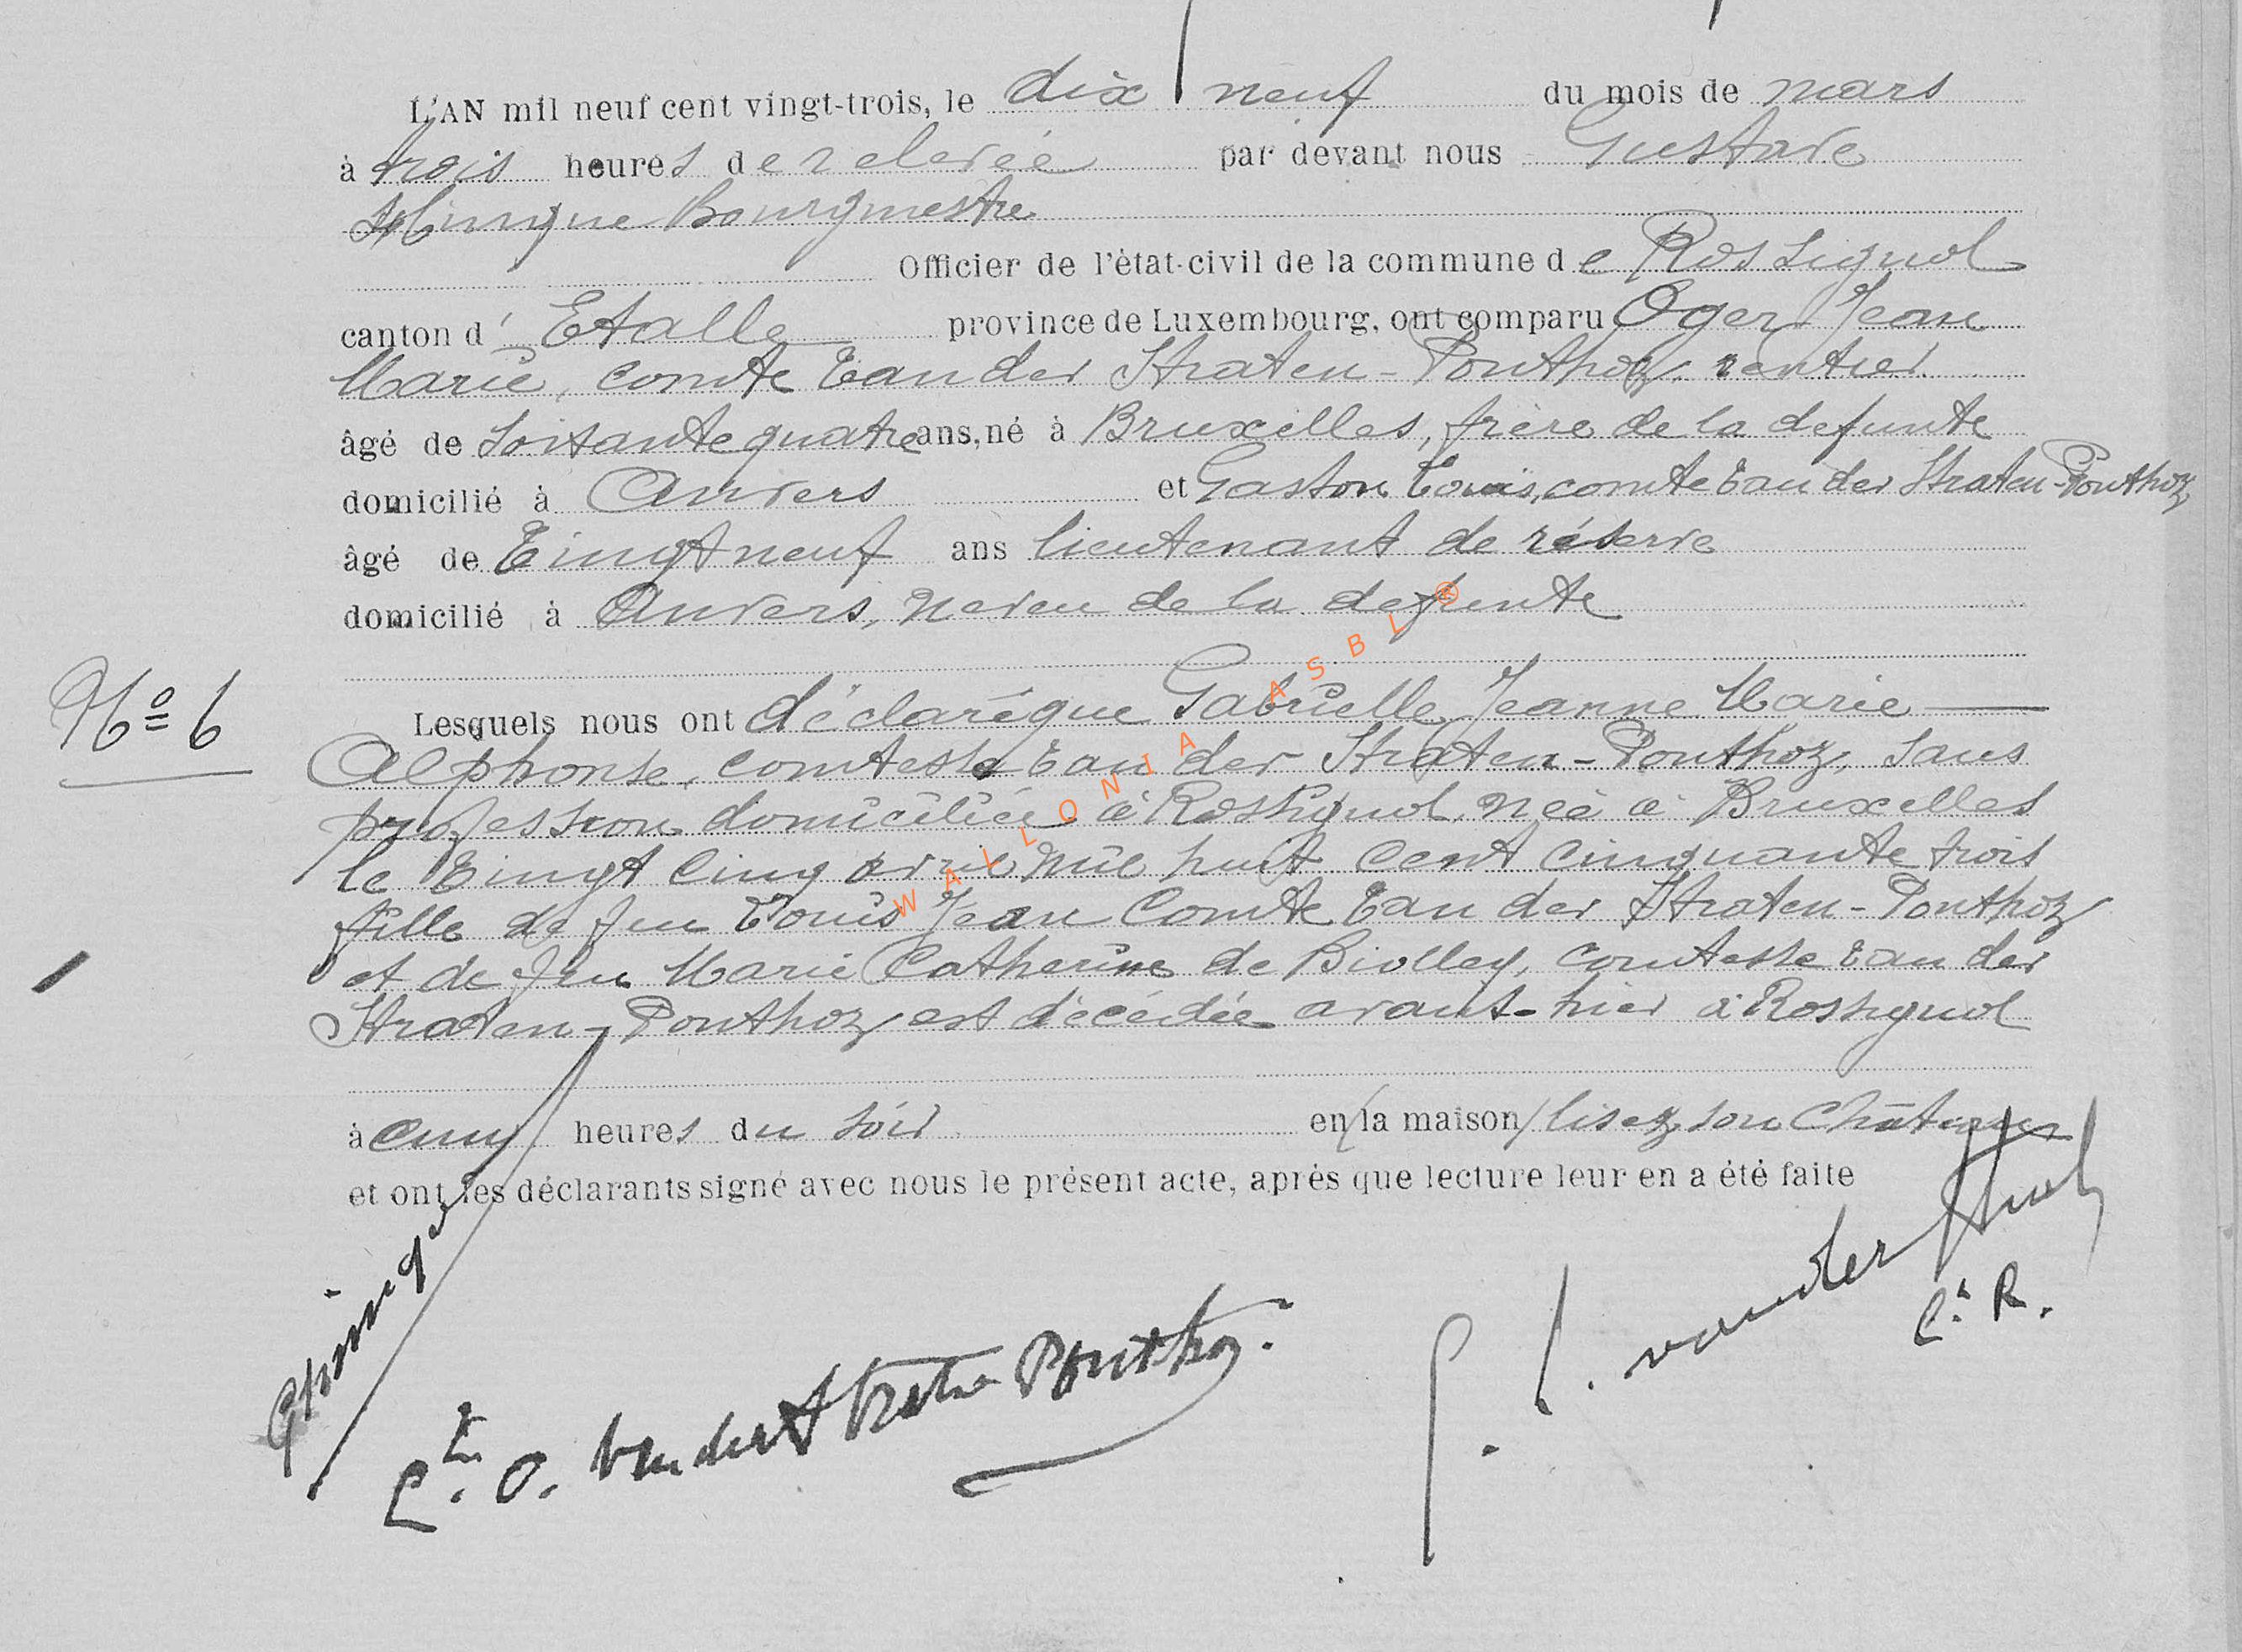 L'AN mil neuf cent vingt-trois, le dix neuf du mois de mars
à trois heures de relevée par devant nous Gustave
Hinque Bourgmestre
Officier de l'ètat-civil de la commune de Rossignol
canton d'Etalle province de Luxembourg, ont comparu Oger Jean
Marie, comte Van der Straten-Ponthoz, rentier
âgé de soixante quatre ans, né à Bruxelles, frère de la defunte
domicilié à Anvers et Gaston Louis, comte Van der Straten-Ponthoz,
âgé de Vingt neuf ans lieutenant de réserve
domicilié à Anvers, neveu de la defunte
Nº 6
Lesquels nous ont déclaré que Gabrielle Jeanne Marie
Alphonse, comtesse Van der Straten-Ponthoz, sans
profession domiciliée à Rossignol, née à Bruxelles
le Vingt cinq avril mil huit cent cinquante trois
fille de feu Louis Jean Comte Van der Straten-Ponthoz
et de feu Marie Catherine de Biolley, comtesse Van der
Straten-Ponthoz est décédée avant-hier à Rossignol
à cinq heures du soir en la maison / lisez son Château
et ont les déclarants signé avec nous le présent acte, après que lecture leur en a été faite
GHinque
Cte. O. van der Straten Ponthoz.
G. L. van der Strat
Lt R.
WALLONIA ASBL ®